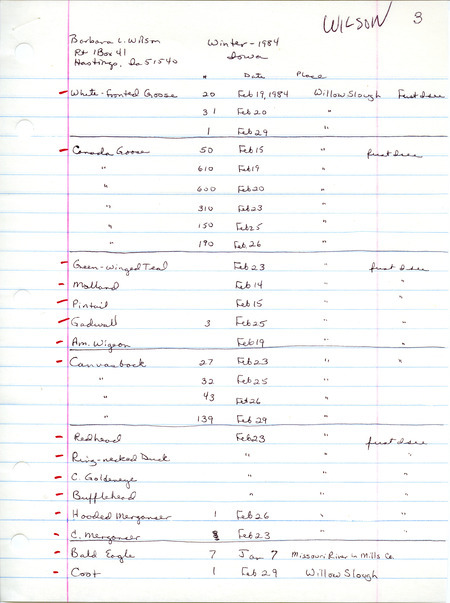 WILSON 3
Barbara L. Wilson Winter-1984
Rt 1 Box 41 Iowa
Hastings, Ia 51540
# Date Place
White-fronted Goose 20 Feb 19, 1984 Willow Slough First date
31 Feb 20 "
1 Feb 29 "
Canada Goose 50 Feb 15 " first date
" 610 Feb 19 "
" 600 Feb 20 "
" 310 Feb 23 "
" 150 Feb 25 "
" 190 Feb 26 "
Green-winged Teal Feb 23 " first date
Mallard Feb 14 " "
Pintail Feb 15 " "
Gadwall 3 Feb 25 " "
Am. Wigeon Feb 19 " "
Canvasback 27 Feb 23 " "
" 32 Feb 25 "
" 43 Feb 26 "
" 139 Feb 29 "
Redhead Feb 23 " first date
Ring-necked Duck " " "
C. Goldeneye " " "
Bufflehead " " "
Hooded Merganser 1 Feb 26 " "
C. Merganser Feb 23 " "
Bald Eagle 7 Jan 7 Missouri River in Mills Co.
Coot 1 Feb 29 Willow Slough